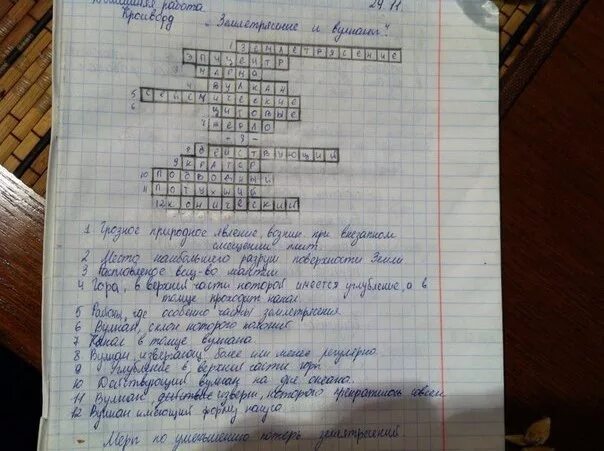 Домашняя работа 24.11
Кроссворд „Землетрясение и вулканы".
1 ЗЕМЛЕТРЯСЕНИЕ
2 ЭПИЦЕНТР
3 МАГМА
4 ВУЛКАН
5 СЕЙСМИЧЕСКИЕ
6 ЩИТОВЫЕ
7 ЖЕРЛО
- З -
8 ДЕЙСТВУЮЩИЙ
9 КРАТЕР
10 ПОДВОДНЫЙ
11 ПОТУХШИЙ
12 КОНИЧЕСКИЙ
1 Грозное природное явление, возник. при внезапном
смещении плит.
2 Место наибольшего разруш поверхности Земли
3 Расплавленое вещ-во мантии
4 Гора, в верхней части которой имеется углубление, а в
толще проходит канал
5 Районы, где особенно часты землетрясения
6 Вулкан, склон которого пологие
7 Канал в толще вулкана
8 Вулкан, изверагающ. более или менее регулярно
9 Углубление в верхней части горы
10 Действующий вулкан на дне океана.
11 Вулкан, извери, которого прекратилось совсем
12 Вулкан имеющий форму конуса
Меры по уменьшению потерь землятресений